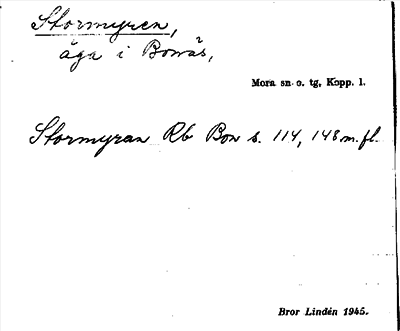 Stormyren,
äga i Bonäs,
Mora sn o. tg, Kopp. l.
Stormyran Rb Bon s. 114, 148 m. fl.
Bror Lindén 1945.